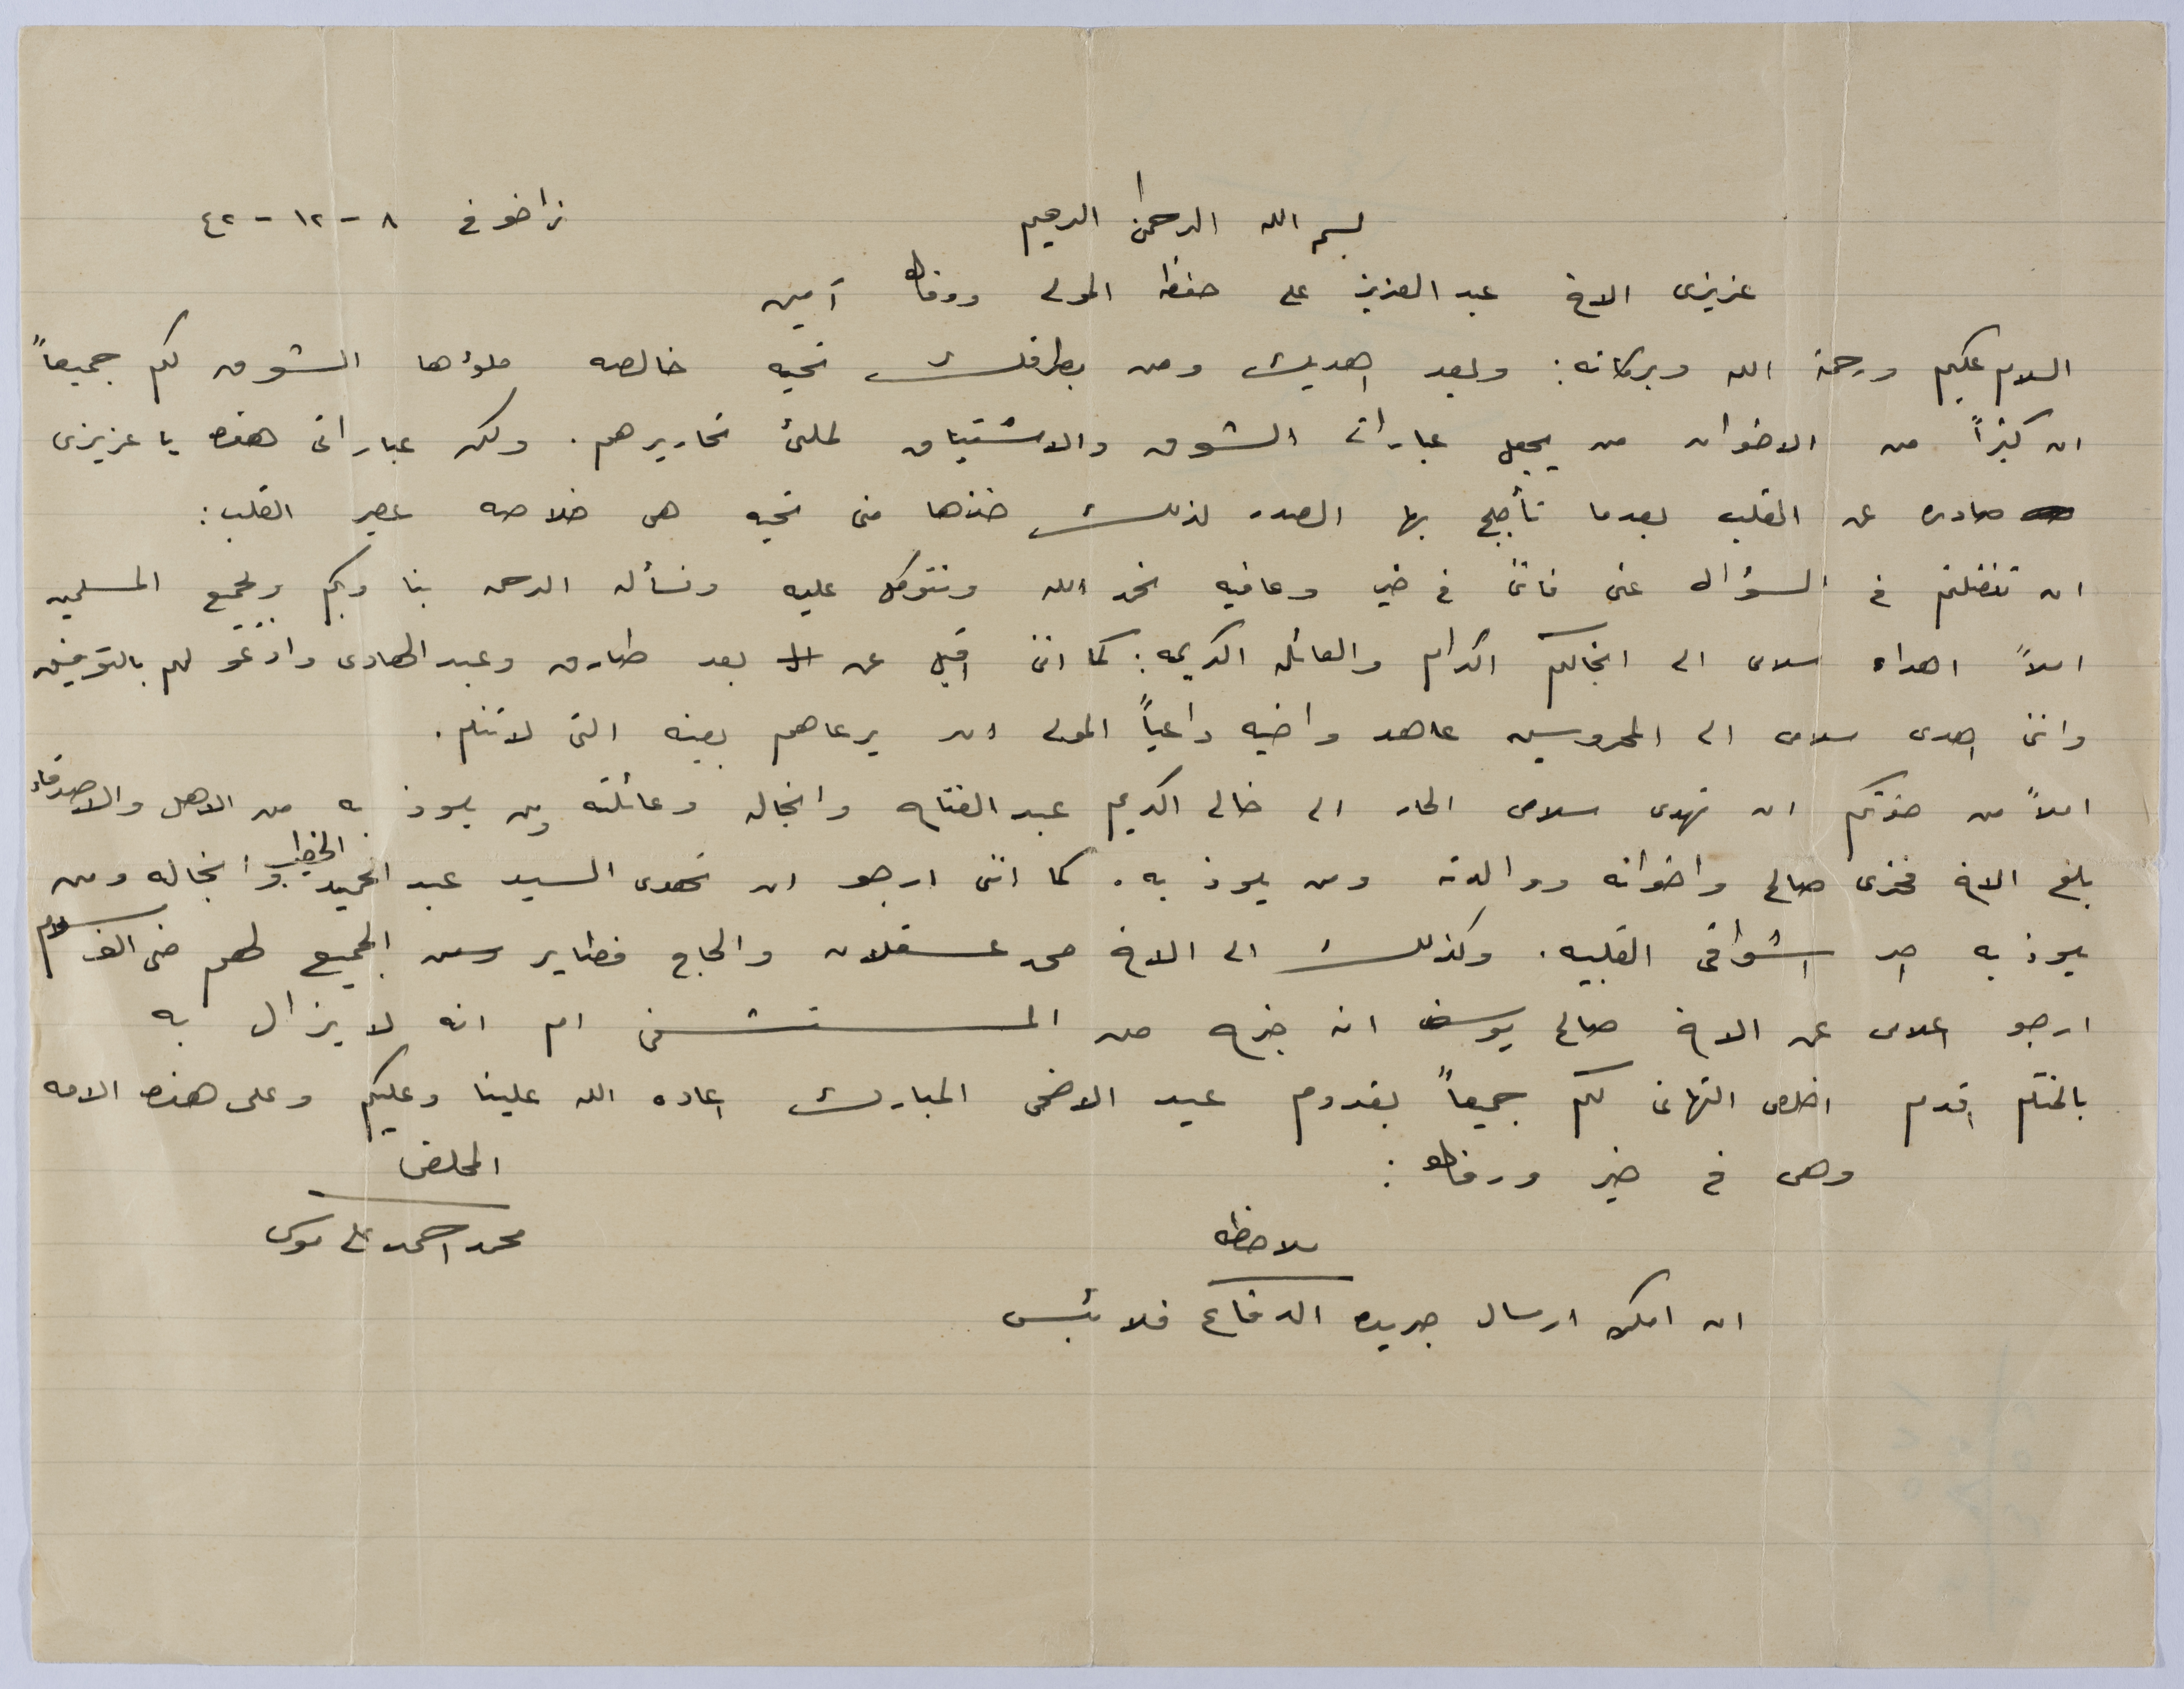 بسم الله الرحمن الرحيم
زاخو في ٨ - ١٢ - ٤٢
عزيزى الاخ عبد العزيز على حفظه المولى ووفاه آمين
السلام عليكم ورحمة الله وبركاته: وبعد اهديك ومن بطرفك تحيه خالصه ملؤها الشوق لكم جميعاً
ان كثيراً من الاخوان من يجعل عبارات الشوق والاشتياق لملئ تحاريرهم. ولكن عباراتى هذه يا عزيزى
صادره عن القلب بعدما تأجج بها الصدر لذلك خذها منى تحيه هى خلاصه عصير القلب:
ان تفضلتم فى السؤال عنى فانى فى خير وعافيه نحمد الله ونتوكل عليه ونسأله الرحمه بنا وبكم وبجميع المسلمين
املاً اهداء سلامى الى انجالكم الكرام والعائله الكريمه: كما اننى اقبل عن بعد طارق وعبد الهادى وادعو لهم بالتوفيق
واننى اهدى سلامى الى المحروسين عاهد واخيه داعياً المولى ان يرعاهم بعينه التى لا تنم.
املاً من حضرتكم ان تهدى سلامى الحار الى خالى الكريم عبد الفتاح وانجاله وعائلته ومن يلوذ به من الاهل والاصدقاء
بلغ الاخ فخرى صالح واخوانه ووالدته ومن يلوذ به. كما اننى ارجو ان تهدى السيد عبد الحميد الخطيب وانجاله ومن
يلوذ به احر اشواقى القلبيه. وكذلك الى الاخ محمد عسقلان والحاج فطاير ومن الجميع لهم منى الف سلام
ارجو اعلامى عن الاخ صالح يوسف انه خرج من المستشفى ام انه لا يزال به
بالختام اقدم اخلص التهانى لكم جميعاً بقدوم عيد الاضحى المبارك اعاده الله علينا وعليكم وعلى هذه الامه
وهى فى خير ورفاه:
المخلص
محمد احمد على موسى
ملاحظه
ان امكن ارسال جريده الدفاع فلا بئس